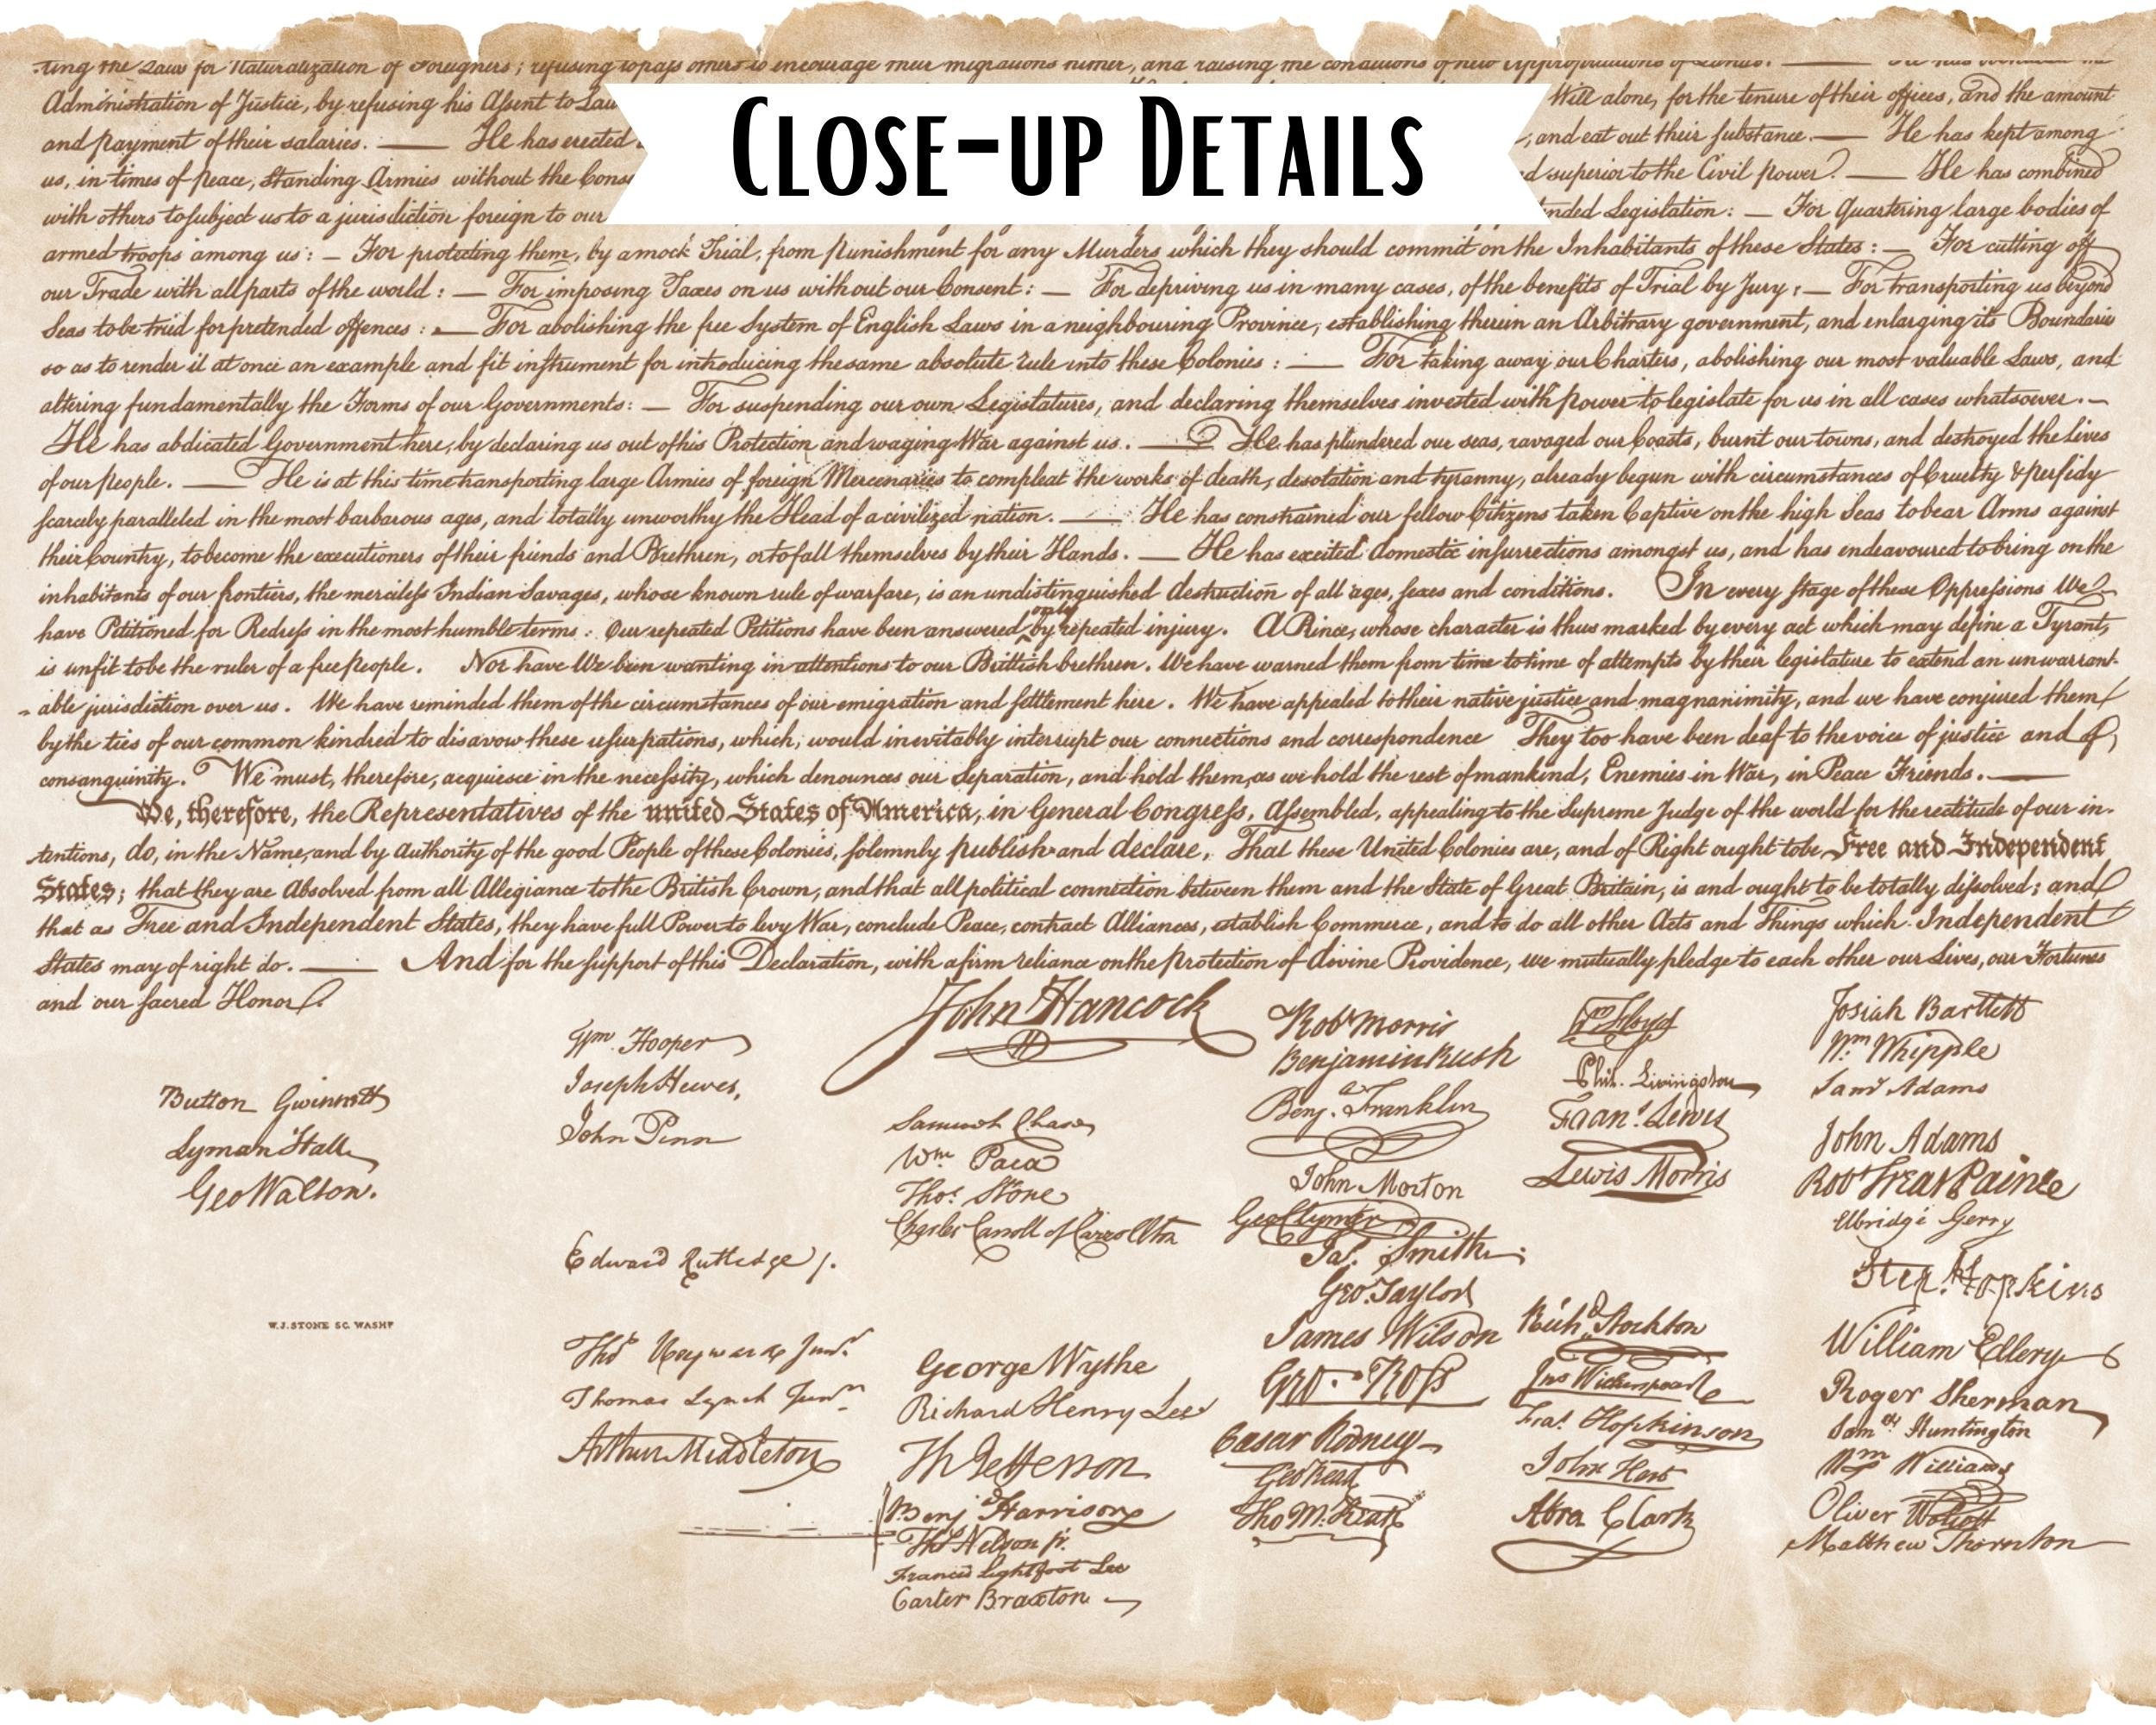 Close-up Details
Administration of Justice, by refusing his Assent to Law
Will alone, for the tenure of their offices, and the amount
and payment of their salaries. — He has erected
, and eat out their substance. — He has kept among
us, in times of peace, Standing Armies without the Cons
d superior to the Civil power. — He has combined
with others to subject us to a jurisdiction foreign to our
ended Legislation: — For quartering large bodies of
armed troops among us: — For protecting them, by a mock Trial, from punishment for any Murders which they should commit on the Inhabitants of these States: — For cutting off
our Trade with all parts of the world: — For imposing Taxes on us without our Consent: — For depriving us in many cases, of the benefits of Trial by Jury: — For transporting us beyond
Seas to be tried for pretended offences: — For abolishing the free System of English Laws in a neighbouring Province, establishing therein an Arbitrary government, and enlarging its Boundaries
so as to render it at once an example and fit instrument for introducing the same absolute rule into these Colonies: — For taking away our Charters, abolishing our most valuable Laws, and
altering fundamentally the Forms of our Governments: — For suspending our own Legislatures, and declaring themselves invested with power to legislate for us in all cases whatsoever. —
He has abdicated Government here, by declaring us out of his Protection and waging War against us. — He has plundered our seas, ravaged our Coasts, burnt our towns, and destroyed the Lives
of our people. — He is at this time transporting large Armies of foreign Mercenaries to compleat the works of death, desolation and tyranny, already begun with circumstances of Cruelty & perfidy
scarcely paralleled in the most barbarous ages, and totally unworthy the Head of a civilized nation. — He has constrained our fellow Citizens taken Captive on the high Seas to bear Arms against
their Country, to become the executioners of their friends and Brethren, or to fall themselves by their Hands. — He has excited domestic insurrections amongst us, and has endeavoured to bring on the
inhabitants of our frontiers, the merciless Indian Savages, whose known rule of warfare, is an undistinguished destruction of all ages, sexes and conditions. In every stage of these Oppressions We
have Petitioned for Redress in the most humble terms: Our repeated Petitions have been answered only by repeated injury. A Prince, whose character is thus marked by every act which may define a Tyrant,
is unfit to be the ruler of a free people. Nor have We been wanting in attentions to our Brittish brethren. We have warned them from time to time of attempts by their legislature to extend an unwarrant-
able jurisdiction over us. We have reminded them of the circumstances of our emigration and settlement here. We have appealed to their native justice and magnanimity, and we have conjured them
by the ties of our common kindred to disavow these usurpations, which, would inevitably interrupt our connections and correspondence They too have been deaf to the voice of justice and of
consanguinity. We must, therefore, acquiesce in the necessity, which denounces our Separation, and hold them, as we hold the rest of mankind, Enemies in War, in Peace Friends. —
We, therefore, the Representatives of the united States of America, in General Congress, Assembled, appealing to the Supreme Judge of the world for the rectitude of our in-
tentions, do, in the Name, and by Authority of the good People of these Colonies, solemnly publish and declare, That these United Colonies are, and of Right ought to be Free and Independent
States; that they are Absolved from all Allegiance to the British Crown, and that all political connection between them and the State of Great Britain, is and ought to be totally dissolved; and
that as Free and Independent States, they have full Power to levy War, conclude Peace, contract Alliances, establish Commerce, and to do all other Acts and Things which Independent
States may of right do. — And for the support of this Declaration, with a firm reliance on the protection of divine Providence, we mutually pledge to each other our Lives, our Fortunes
and our sacred Honor.
Button Gwinnett
Lyman Hall
Geo Walton.
W.J. STONE SC. WASHN
Wm Hooper
Joseph Hewes,
John Penn
Edward Rutledge /.
Thos Heyward Junr.
Thomas Lynch Junr.
Arthur Middleton
John Hancock
Samuel Chase
Wm Paca
Thos. Stone
Charles Carroll of Carrollton
George Wythe
Richard Henry Lee
Th Jefferson
Benj Harrison
Thos Nelson jr.
Francis Lightfoot Lee
Carter Braxton
Robt Morris
Benjamin Rush
Benj. Franklin
John Morton
Geo Clymer
Jas. Smith
Geo. Taylor
James Wilson
Geo. Ross
Caesar Rodney
Geo Read
Tho M:Kean
Wm Floyd
Phil. Livingston
Frans. Lewis
Lewis Morris
Richd. Stockton
Jno Witherspoon
Fras. Hopkinson
John Hart
Abra Clark
Josiah Bartlett
Wm: Whipple
Saml Adams
John Adams
Robt Treat Paine
Elbridge Gerry
Step. Hopkins
William Ellery
Roger Sherman
Samel Huntington
Wm Williams
Oliver Wolcott
Matthew Thornton